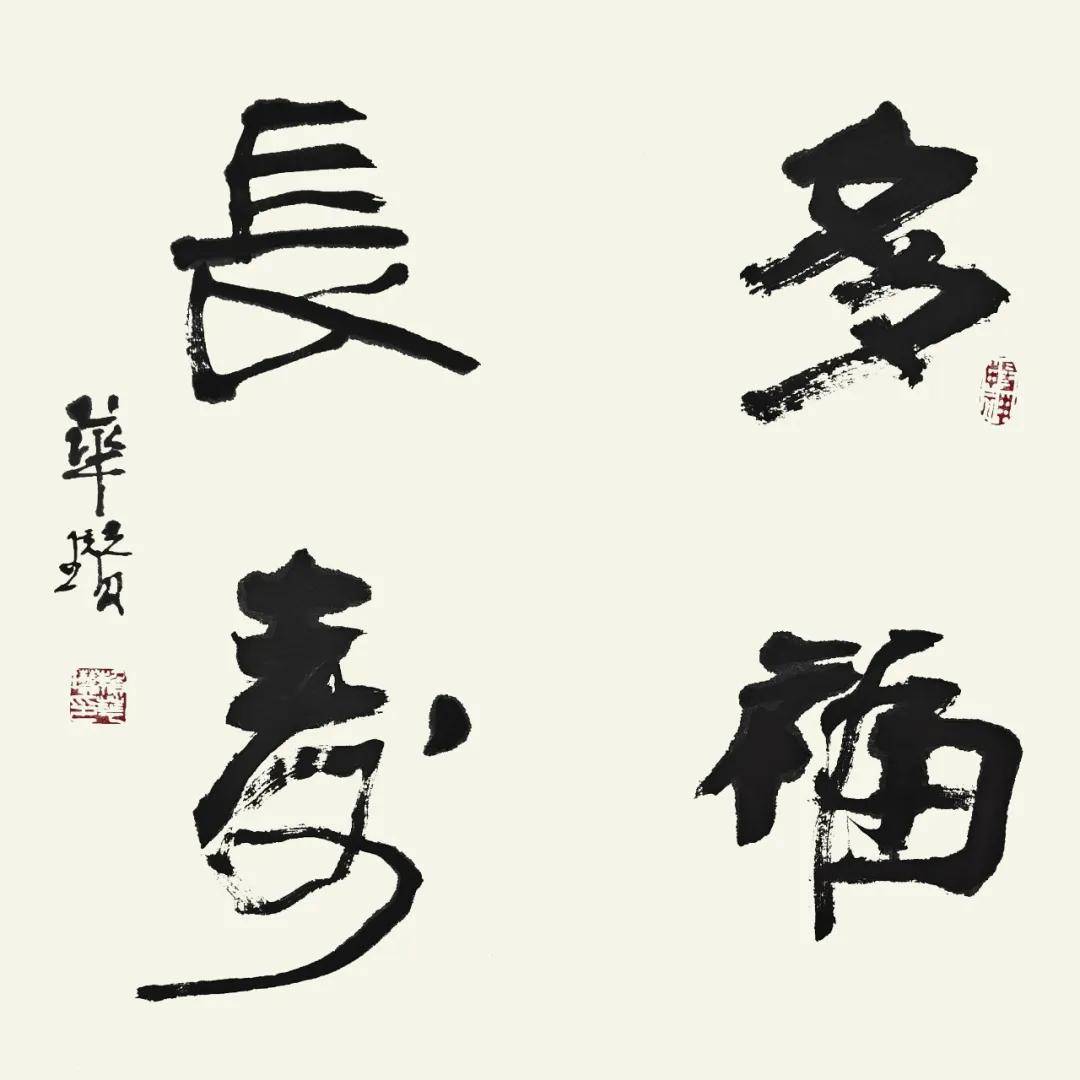 多福
長壽
華瓚